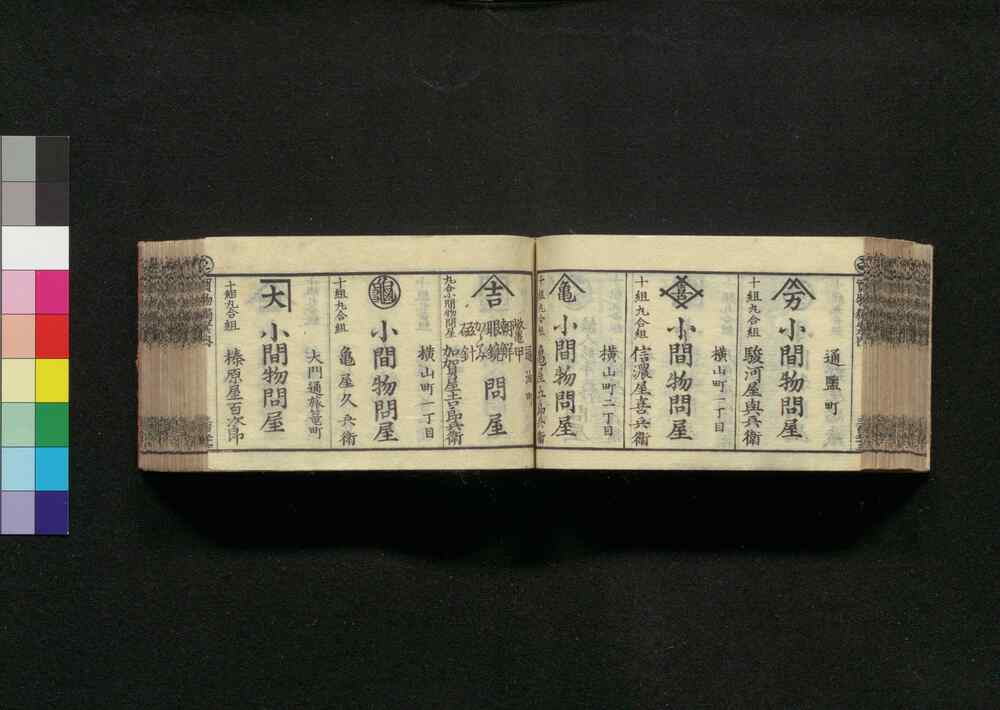 通鹽町
小間物問屋
十組九合組
駿河屋與兵衛
横山町一丁目
小間物問屋
十組九合組
信濃屋喜兵衛
横山町二丁目
亀
小間物問屋
十組九合組
通油町
吉
鼈甲
眼鏡
磁針
問屋
九合小間物問屋
加賀屋吉郎兵衛
横山町一丁目
龜
小間物問屋
十組九合組
亀屋久兵衛
大門通旅篭町
大
小間物問屋
十組九合組
榛原屋百次郎